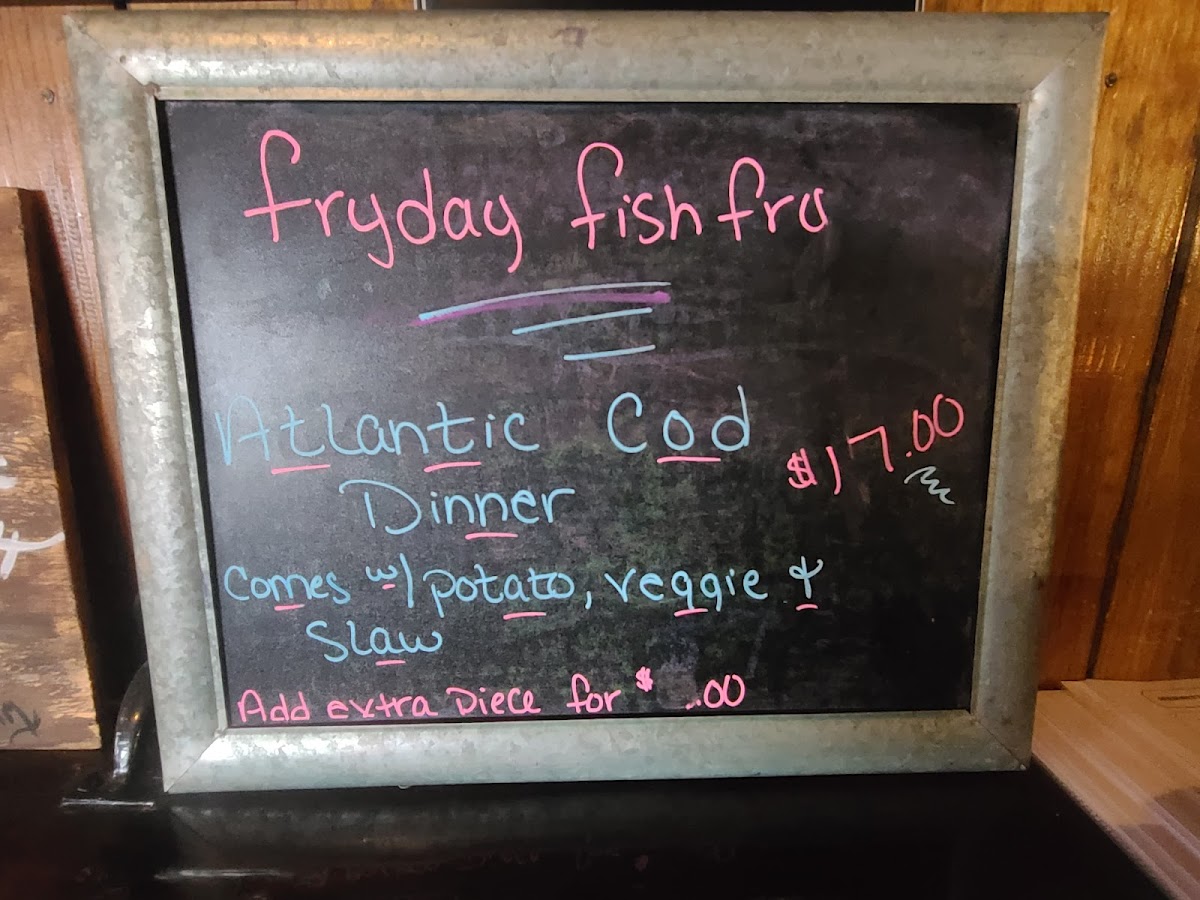 fryday fish fry
Atlantic Cod
Dinner
$17.00
Comes w/ potato, veggie &
Slaw
Add extra piece for $ .00